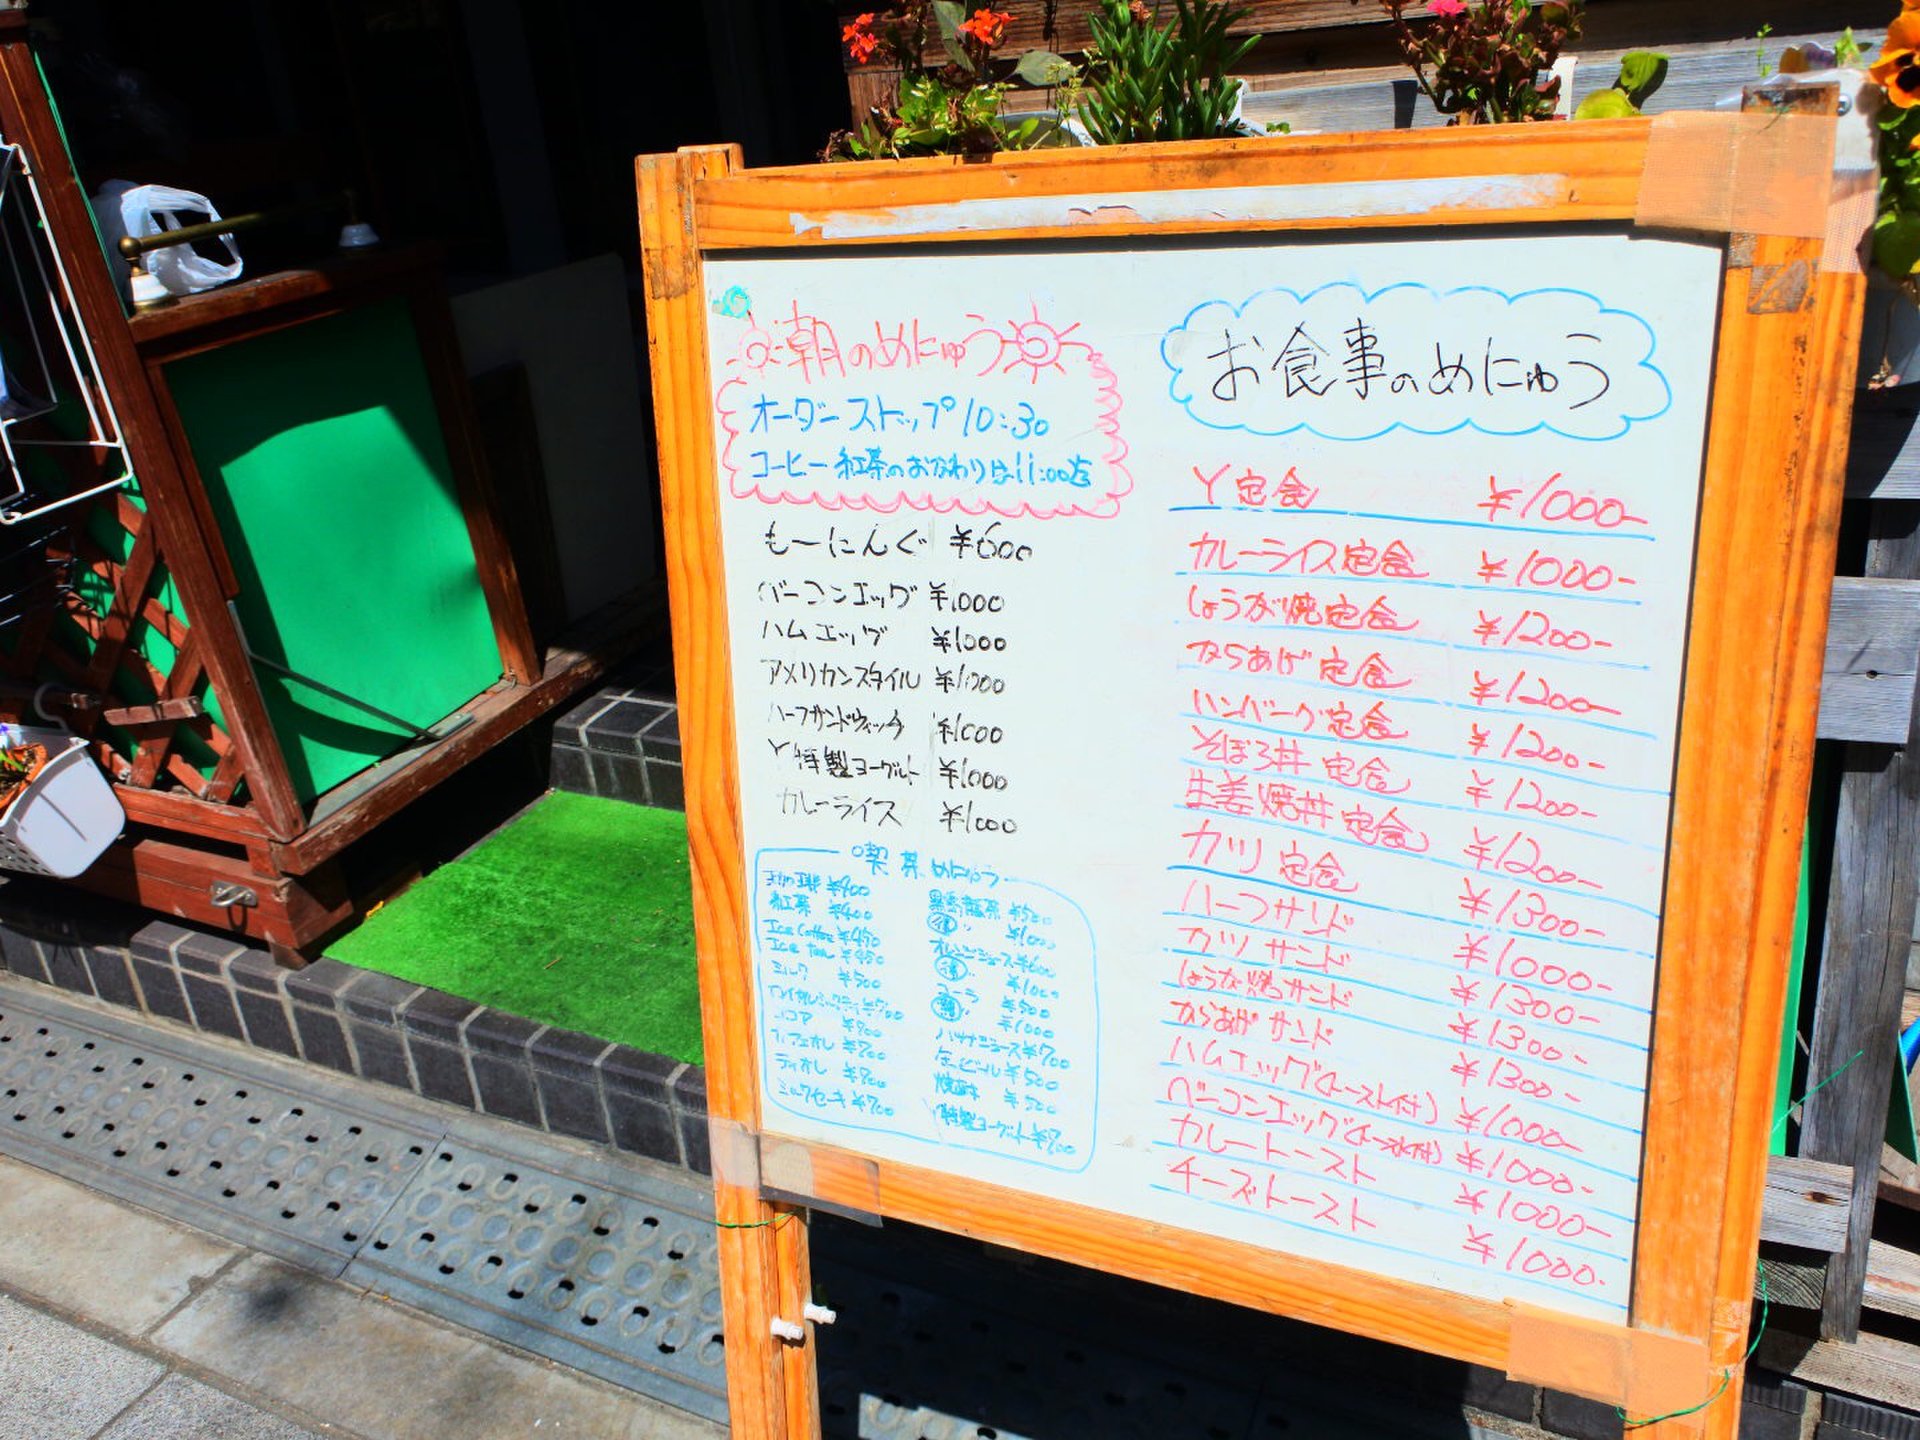 朝のめにゅう
オーダーストップ10:30
コーヒー紅茶のおかわりは11:00迄
もーにんぐ ¥600
ベーコンエッグ ¥1000
ハムエッグ ¥1000
アメリカンスタイル ¥1200
ハーフサンドウィッチ ¥1000
Y特製ヨーグルト ¥1000
カレーライス ¥1000
喫茶めにゅう
紅茶 ¥400
Ice Coffee ¥450
Ice Tea ¥450
ミルク ¥500
ココア ¥700
カフェオレ ¥700
ティオレ ¥700
ミルクセーキ ¥700
黒烏龍茶 ¥500
¥1000
オレンジジュース ¥600
¥1000
コーラ ¥500
¥1000
バナナジュース ¥700
生ビール ¥500
焼酎 ¥500
特製ヨーグルト ¥700
お食事のめにゅう
Y定食 ¥1000-
カレーライス定食 ¥1000-
しょうが焼定食 ¥1200-
からあげ定食 ¥1200-
ハンバーグ定食 ¥1200-
そぼろ丼定食 ¥1200-
生姜焼丼定食 ¥1200-
カツ定食 ¥1300-
ハーフサンド ¥1000-
カツサンド ¥1300-
しょうが焼サンド ¥1300-
からあげサンド ¥1300-
ハムエッグ(トースト付) ¥1000-
ベーコンエッグ(トースト付) ¥1000-
カレートースト ¥1000-
チーズトースト ¥1000-